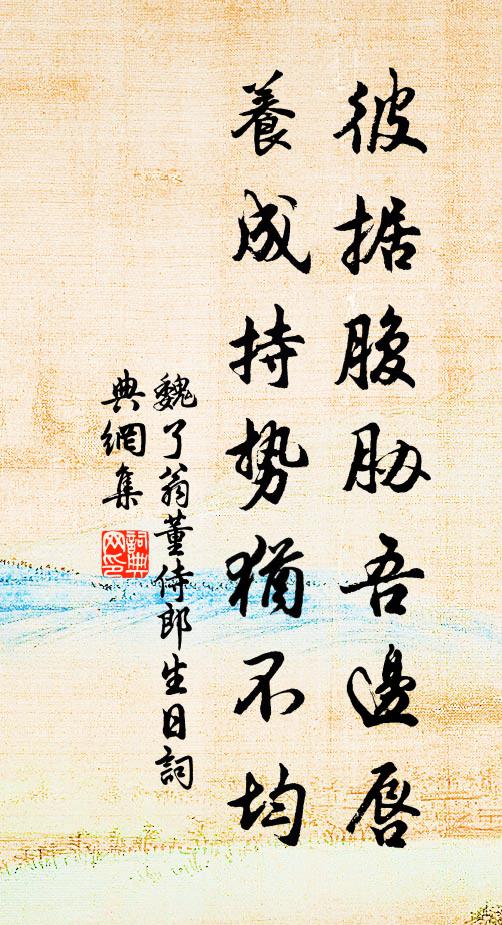 彼据腹胁吾邊唇
養成持势猶不均
魏了翁董侍郎生日詞
典網集
詞典网印